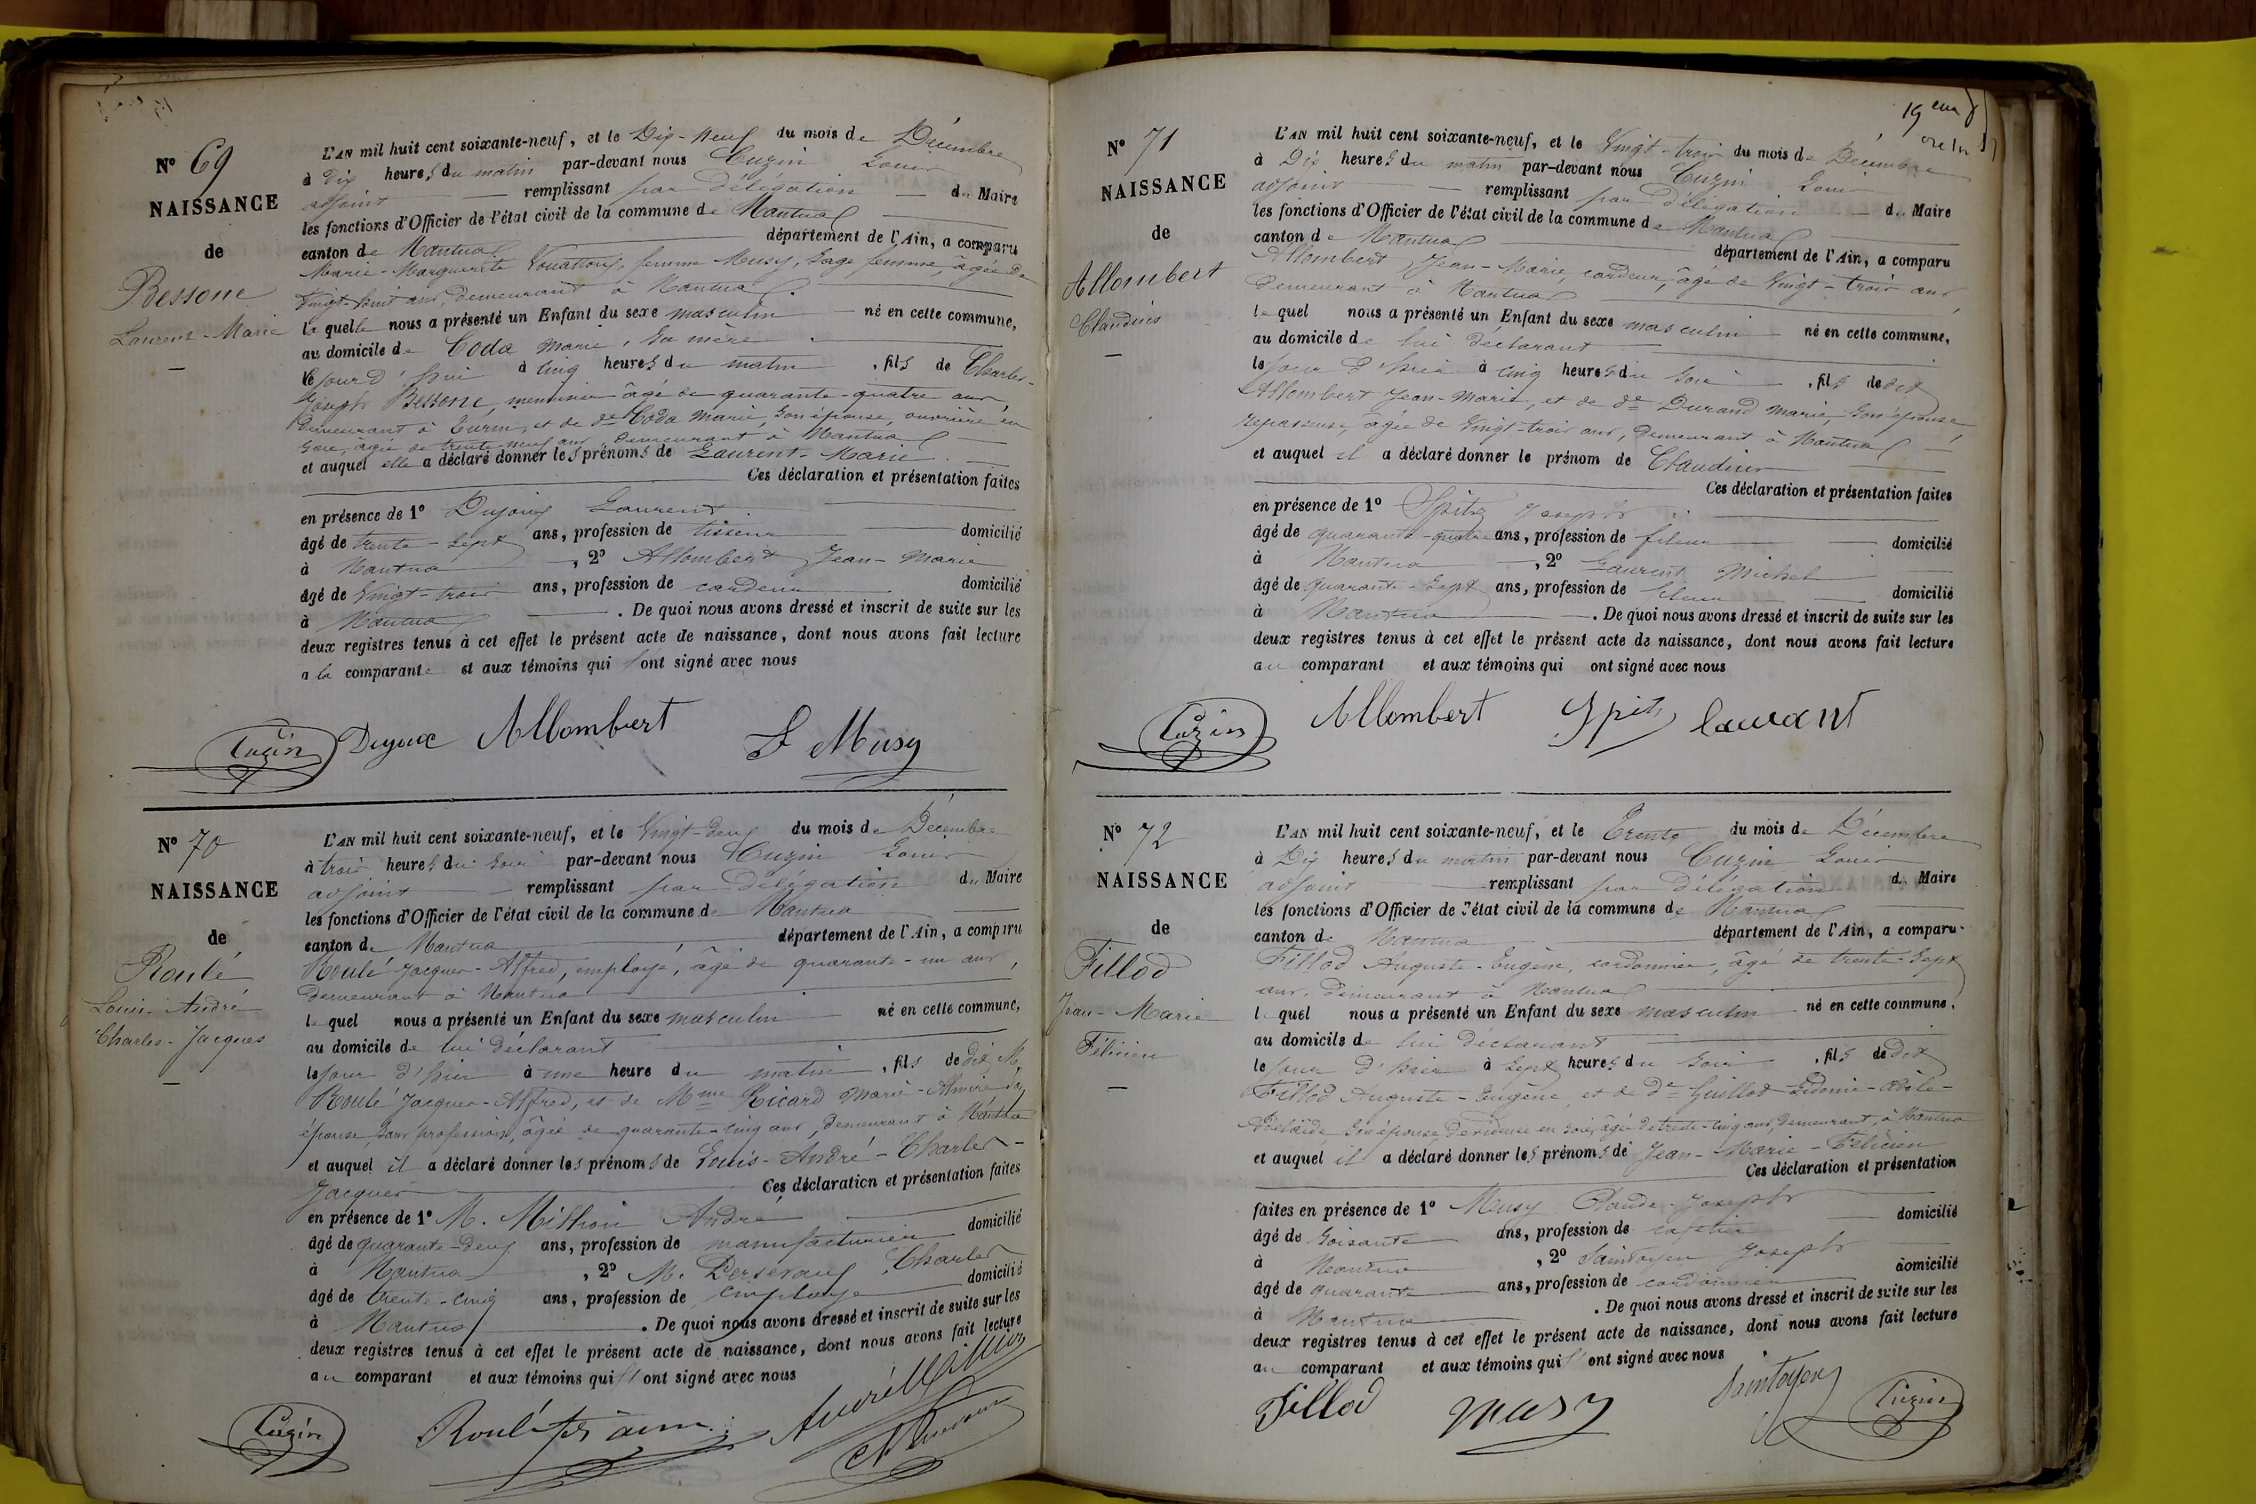 N° 69
NAISSANCE
de
Bessone
Laurent-Marie
L'AN mil huit cent soixante-neuf, et le Dix-Neuf du mois de Décembre
à Dix heures du matin par-devant nous Cuzin Louis
adjoint remplissant par délégation du Maire
les fonctions d'Officier de l'état civil de la commune de Nantua
canton de Nantua département de l'Ain, a comparu
Marie-Marguerite femme Musy, Sage femme, âgée de
Vingt-huit ans, demeurant à Nantua
laquelle nous a présenté un Enfant du sexe masculin né en cette commune,
au domicile de Coda Marie, sa mère
le jour d'hui à cinq heures du matin, fils de Charles-
Joseph Bessone, menuisier âgé de quarante-quatre ans,
demeurant à Turin, et de de Coda Marie, son épouse, ouvrière en
soie, âgée de trente-neuf ans, demeurant à Nantua
et auquel elle a déclaré donner les prénoms de Laurent-Marie
Ces déclaration et présentation faites
en présence de 1° Dujoux Laurent
âgé de trente-sept ans, profession de tisseur domicilié
à Nantua, 2° Allombert Jean-Marie
âgé de Vingt-trois ans, profession de cardeur domicilié
à Nantua. De quoi nous avons dressé et inscrit de suite sur les
deux registres tenus à cet effet le présent acte de naissance, dont nous avons fait lecture
a la comparante et aux témoins qui l'ont signé avec nous
Cuzin Dujoux Allombert F Musy
N° 70
NAISSANCE
de
Roulé
Louis-André
Charles-Jacques
L'AN mil huit cent soixante-neuf, et le Vingt-deux du mois de Décembre
à trois heures du soir par-devant nous Cuzin Louis
adjoint remplissant par délégation du Maire
les fonctions d'Officier de l'état civil de la commune de Nantua
canton de Nantua département de l'Ain, a comparu
Roulé Jacques-Alfred, employé, âgé de quarante-un ans,
demeurant à Nantua
lequel nous a présenté un Enfant du sexe masculin né en cette commune,
au domicile de lui déclarant
le jour d'hier à une heure du matin, fils de dit M.
Roulé Jacques-Alfred, et de Mme Ricard Marie- son
épouse, sans profession, âgée de quarante-cinq ans, demeurant à Nantua
et auquel il a déclaré donner les prénoms de Louis-André-Charles-
Jacques
Ces déclaration et présentation faites
en présence de 1° M. Millon André
âgé de quarante-deux ans, profession de manufacturier domicilié
à Nantua, 2° M. Charles
âgé de trente-cinq ans, profession de employé domicilié
à Nantua. De quoi nous avons dressé et inscrit de suite sur les
deux registres tenus à cet effet le présent acte de naissance, dont nous avons fait lecture
au comparant et aux témoins qui l'ont signé avec nous
Cuzin Roulé André Millon
N° 71
NAISSANCE
de
Allombert
Claudius
L'AN mil huit cent soixante-neuf, et le Vingt-trois du mois de Décembre
à Dix heures du matin par-devant nous Cuzin Louis
adjoint remplissant par délégation du Maire
les fonctions d'Officier de l'état civil de la commune de Nantua
canton de Nantua département de l'Ain, a comparu
Allombert Jean-Marie, cardeur, âgé de Vingt-trois ans
demeurant à Nantua
lequel nous a présenté un Enfant du sexe masculin né en cette commune,
au domicile de lui déclarant
le jour d'hier à cinq heures du soir, fils de dit
Allombert Jean-Marie, et de de Durand Marie, son épouse,
repasseuse, âgée de Vingt-trois ans, demeurant à Nantua
et auquel il a déclaré donner le prénom de Claudius
Ces déclaration et présentation faites
en présence de 1° Spitz Joseph
âgé de quarante-quatre ans, profession de fileur domicilié
à Nantua, 2° Laurent Michel
âgé de quarante-sept ans, profession de fileur domicilié
à Nantua. De quoi nous avons dressé et inscrit de suite sur les
deux registres tenus à cet effet le présent acte de naissance, dont nous avons fait lecture
au comparant et aux témoins qui ont signé avec nous
Cuzin Allombert Spitz laurant
N° 72
NAISSANCE
de
Fillod
Jean-Marie
Félicien
L'AN mil huit cent soixante-neuf, et le Trente du mois de Décembre
à Dix heures du matin par-devant nous Cuzin Louis
adjoint remplissant par délégation du Maire
les fonctions d'Officier de l'état civil de la commune de Nantua
canton de Nantua département de l'Ain, a comparu
Fillod Auguste-Eugène, cordonnier, âgé de trente-sept
ans, demeurant à Nantua
lequel nous a présenté un Enfant du sexe masculin né en cette commune,
au domicile de lui déclarant
le jour d'hier à sept heures du soir, fils de dit
Fillod Auguste-Eugène, et de de Guillot
Adélaïde, son épouse, dévideuse en soie, âgée de trente-cinq ans, demeurant à Nantua
et auquel il a déclaré donner les prénoms de Jean-Marie-Félicien
Ces déclaration et présentation
faites en présence de 1° Musy Claude-Joseph
âgé de soixante ans, profession de cafetier domicilié
à Nantua, 2° Saintoyen Joseph
âgé de quarante ans, profession de cordonnier domicilié
à Nantua. De quoi nous avons dressé et inscrit de suite sur les
deux registres tenus à cet effet le présent acte de naissance, dont nous avons fait lecture
au comparant et aux témoins qui l'ont signé avec nous
Fillod Musy Saintoyen Cuzin